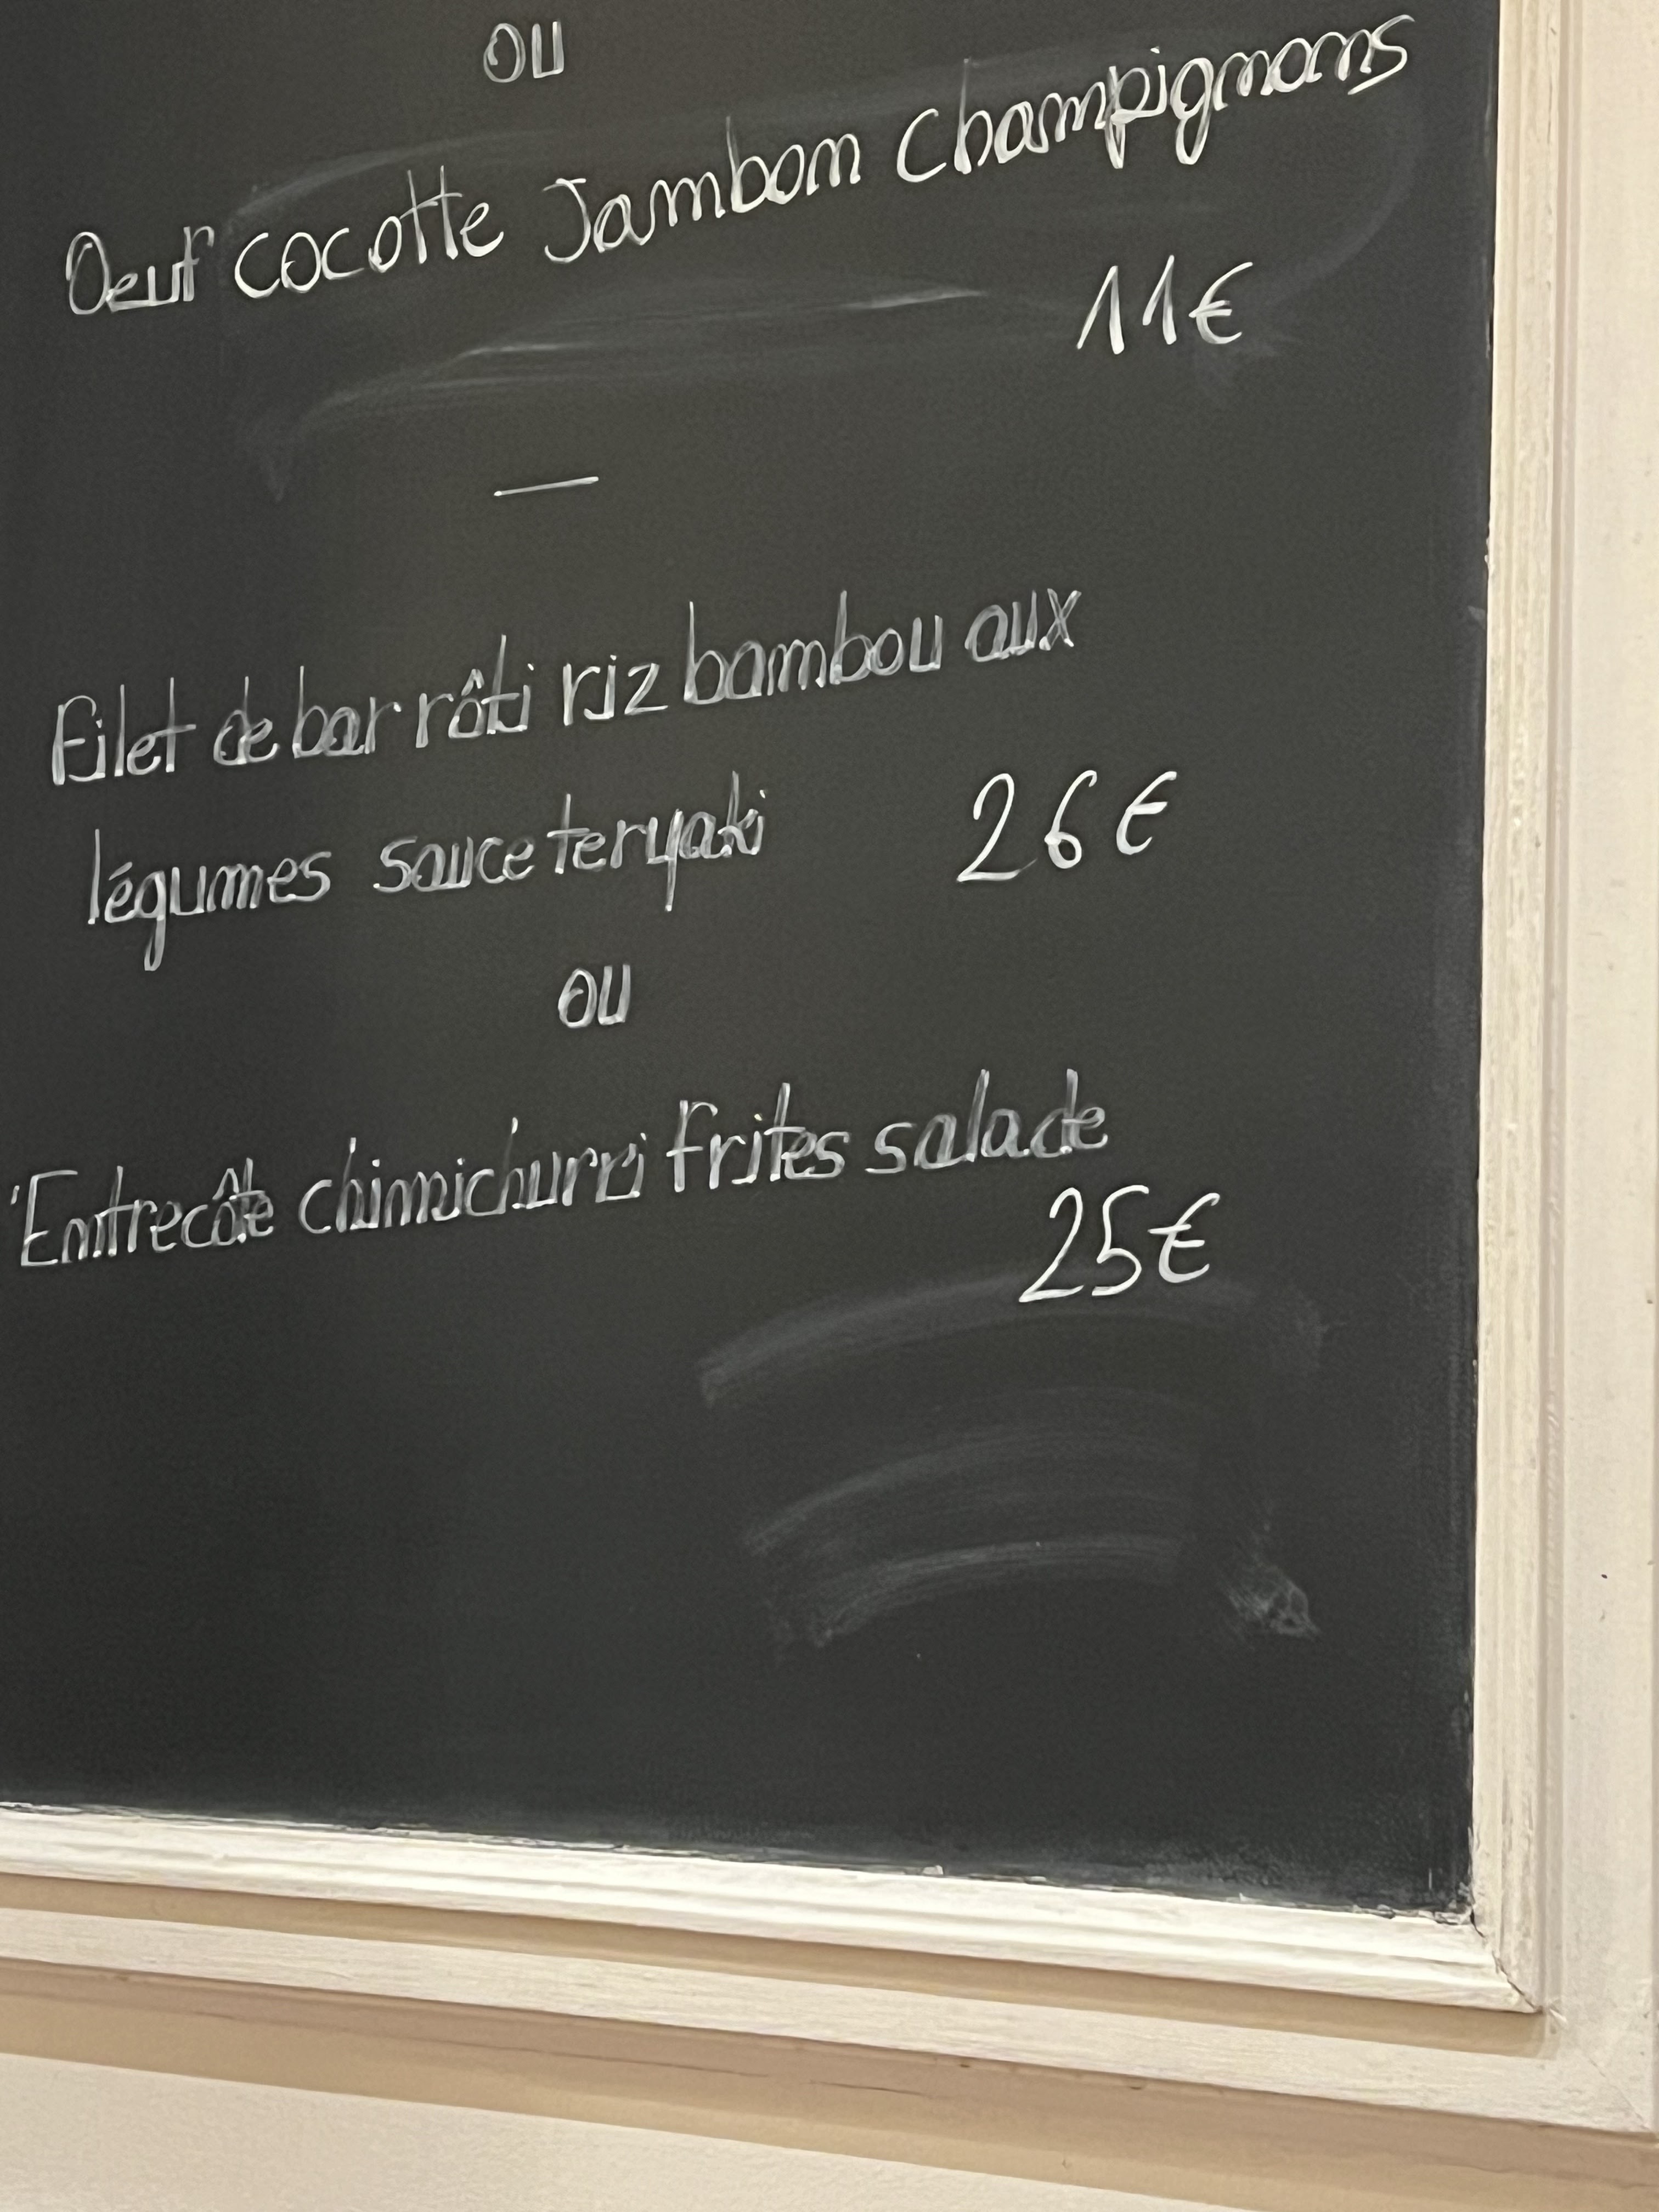 ou
Oeuf cocotte Jambon Champignons
11€
—
Filet de bar rôti riz bambou aux
légumes sauce teryaki 26€
ou
Entrecôte chimichurri frites salade
25€